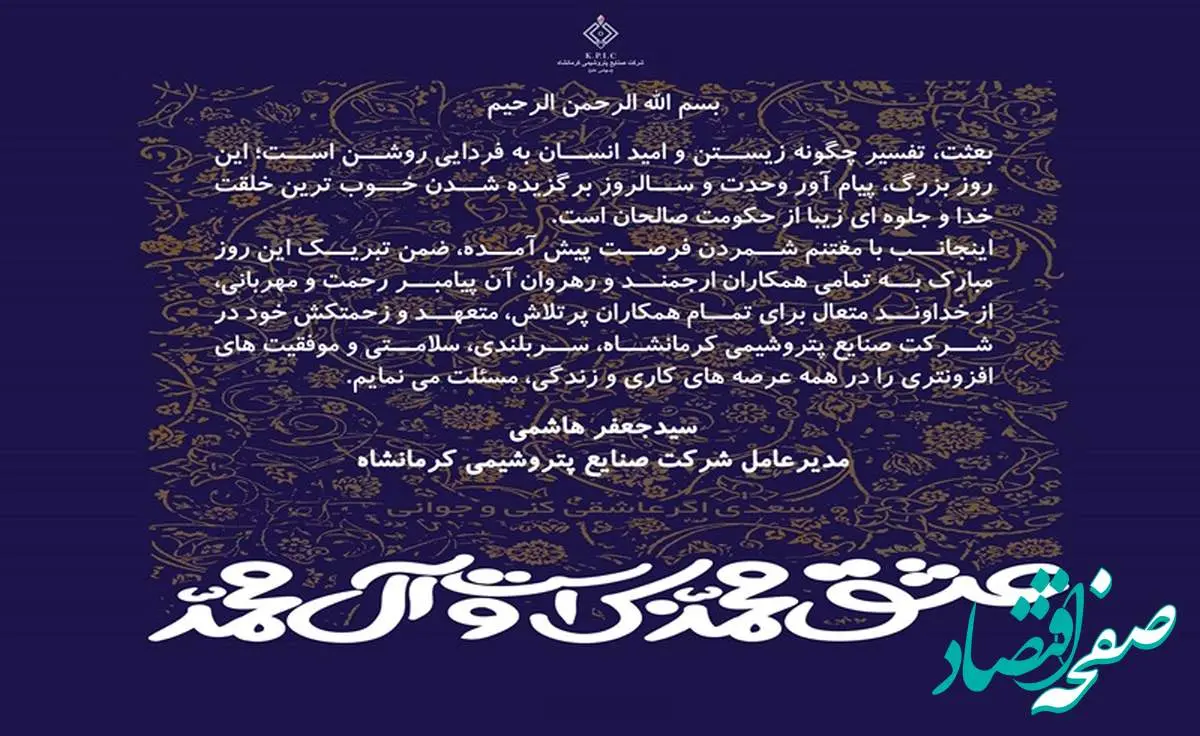 K.P.I.C
شرکت صنایع پتروشیمی کرمانشاه
بسم الله الرحمن الرحیم
بعثت، تفسیر چگونه زیستن و امید انسان به فردایی روشن است؛ این
روز بزرگ، پیام آور وحدت و سالروز برگزیده شدن خوب ترین خلقت
خدا و جلوه ای زیبا از حکومت صالحان است.
اینجانب با مغتنم شمردن فرصت پیش آمده، ضمن تبریک این روز
مبارک به تمامی همکاران ارجمند و رهروان آن پیامبر رحمت و مهربانی،
از خداوند متعال برای تمام همکاران پرتلاش، متعهد و زحمتکش خود در
شرکت صنایع پتروشیمی کرمانشاه، سربلندی، سلامتی و موفقیت های
افزونتری را در همه عرصه های کاری و زندگی، مسئلت می نمایم.
سیدجعفر هاشمی
مدیرعامل شرکت صنایع پتروشیمی کرمانشاه
سعدی اگر عاشقی کنی و جوانی
عشق محمد بس است و آل محمد
صفحه اقتصاد